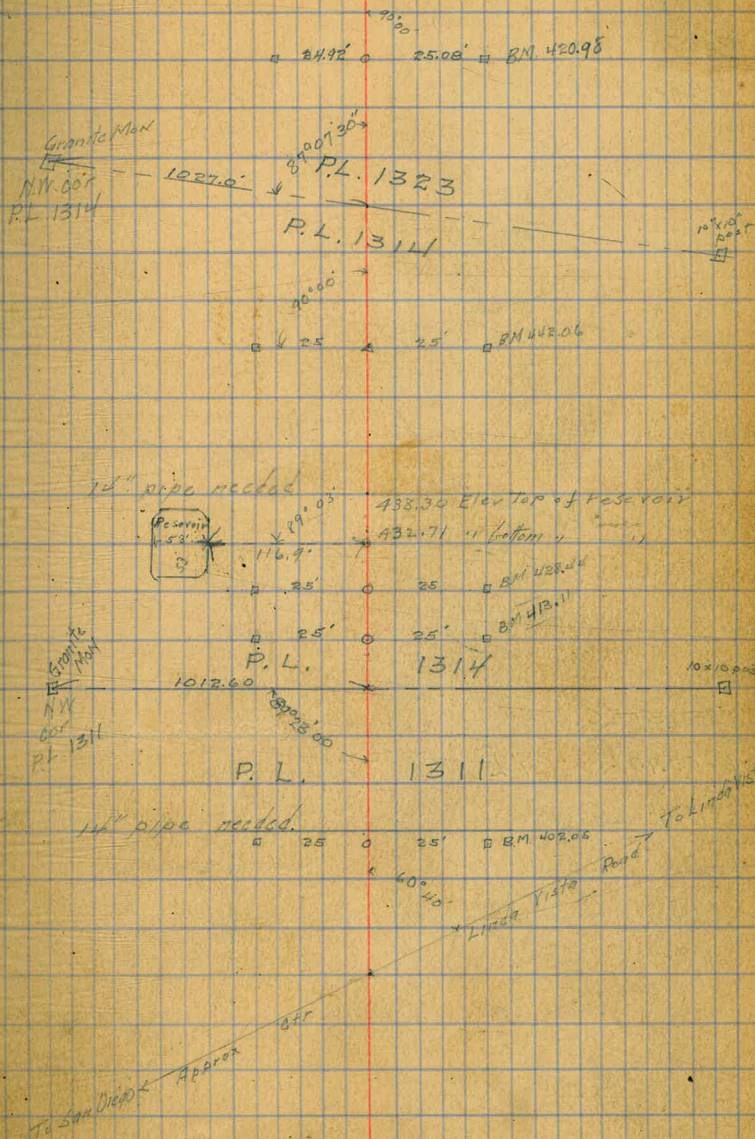 90°00'
24.92' 25.08' B.M. 420.98
Granite Mon
N.W. cor
P.L. 1314
1027.0'
87°07'30"
P.L. 1323
P.L. 1314
10"x10"
post
90°00'
25 25' B.M 442.06
14" pipe needed
Resevoir
53'
89° 03'
116.9'
438.30 Elev Top of resevoir
432.71 " bottom " "
25' 25 BM 428.44
25' 25' BM 413.11
P. L. 1314
Granite
Mon
NW
cor
P.L. 1311
1012.60
89°28'00
10x10 post
P. L. 1311
14" pipe needed.
25 25' B.M. 402.05
60°40'
To Linda Vista
Linda Vista Road
Approx ctr
To San Diego